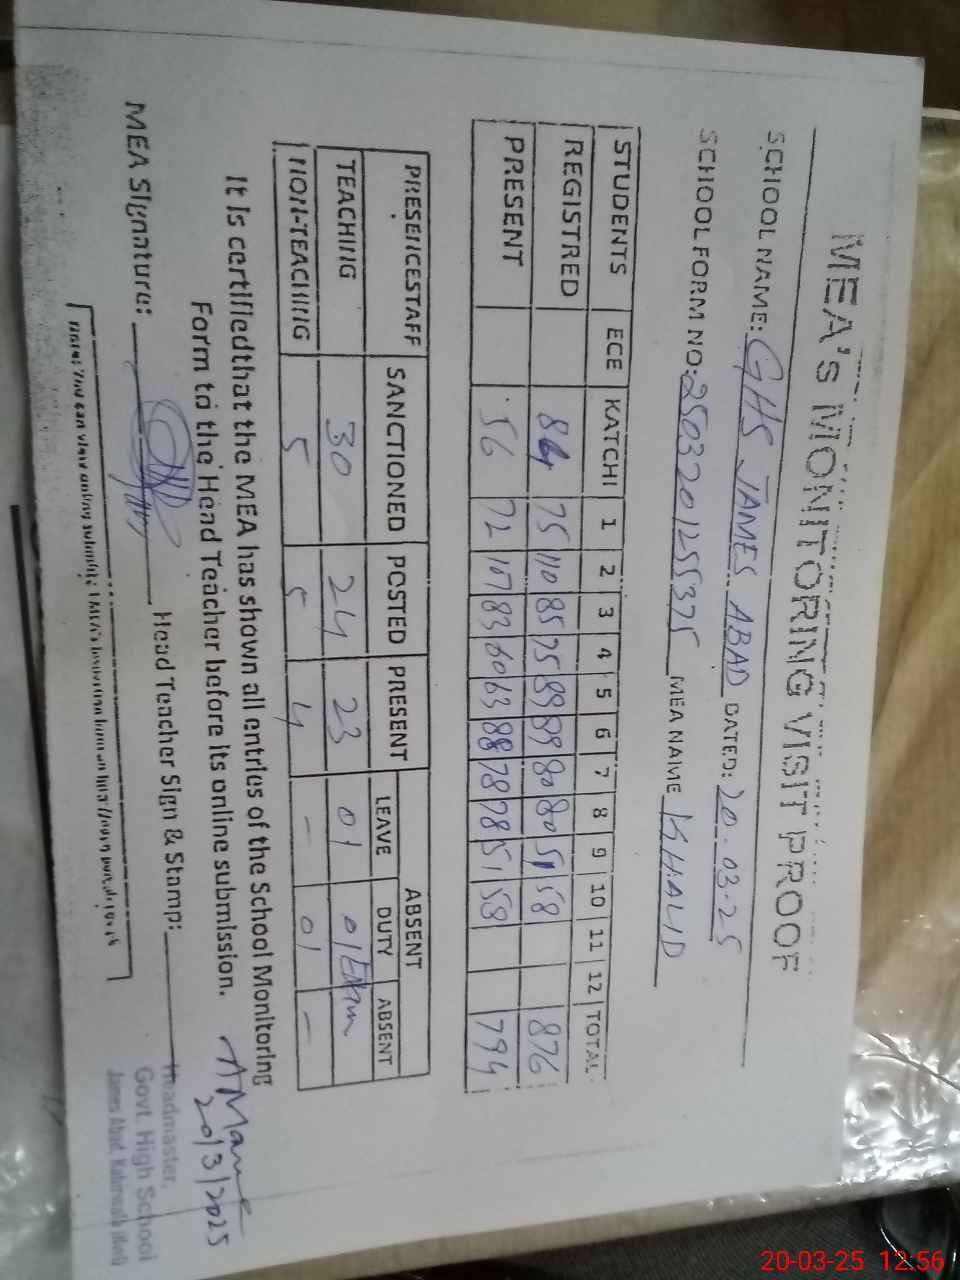 MEA'S MONITORING VISIT PROOF
SCHOOL NAME: GHS JAMES ABAD DATED: 20.03.25
SCHOOL FORM NO: 2503201255375 MEA NAME KHALID
STUDENTS ECE KATCHI 1 2 3 4 5 6 7 8 9 10 11 12 TOTAL
REGISTRED 84 75 110 85 75 89 89 80 80 51 58 876
PRESENT 56 72 107 83 60 63 88 78 78 51 58 794
PRESENCESTAFF SANCTIONED POSTED PRESENT ABSENT
LEAVE DUTY ABSENT
TEACHING 30 24 23 01 01 Exam
NON-TEACHING 5 5 4 - 01 -
It is certifiedthat the MEA has shown all entries of the School Monitoring
Form to the Head Teacher before its online submission.
20/3/2025
MEA Signature: Head Teacher Sign & Stamp:
Headmaster,
Govt. High School
James Abad,
Note: You can view online submitt
20-03-25 12:56